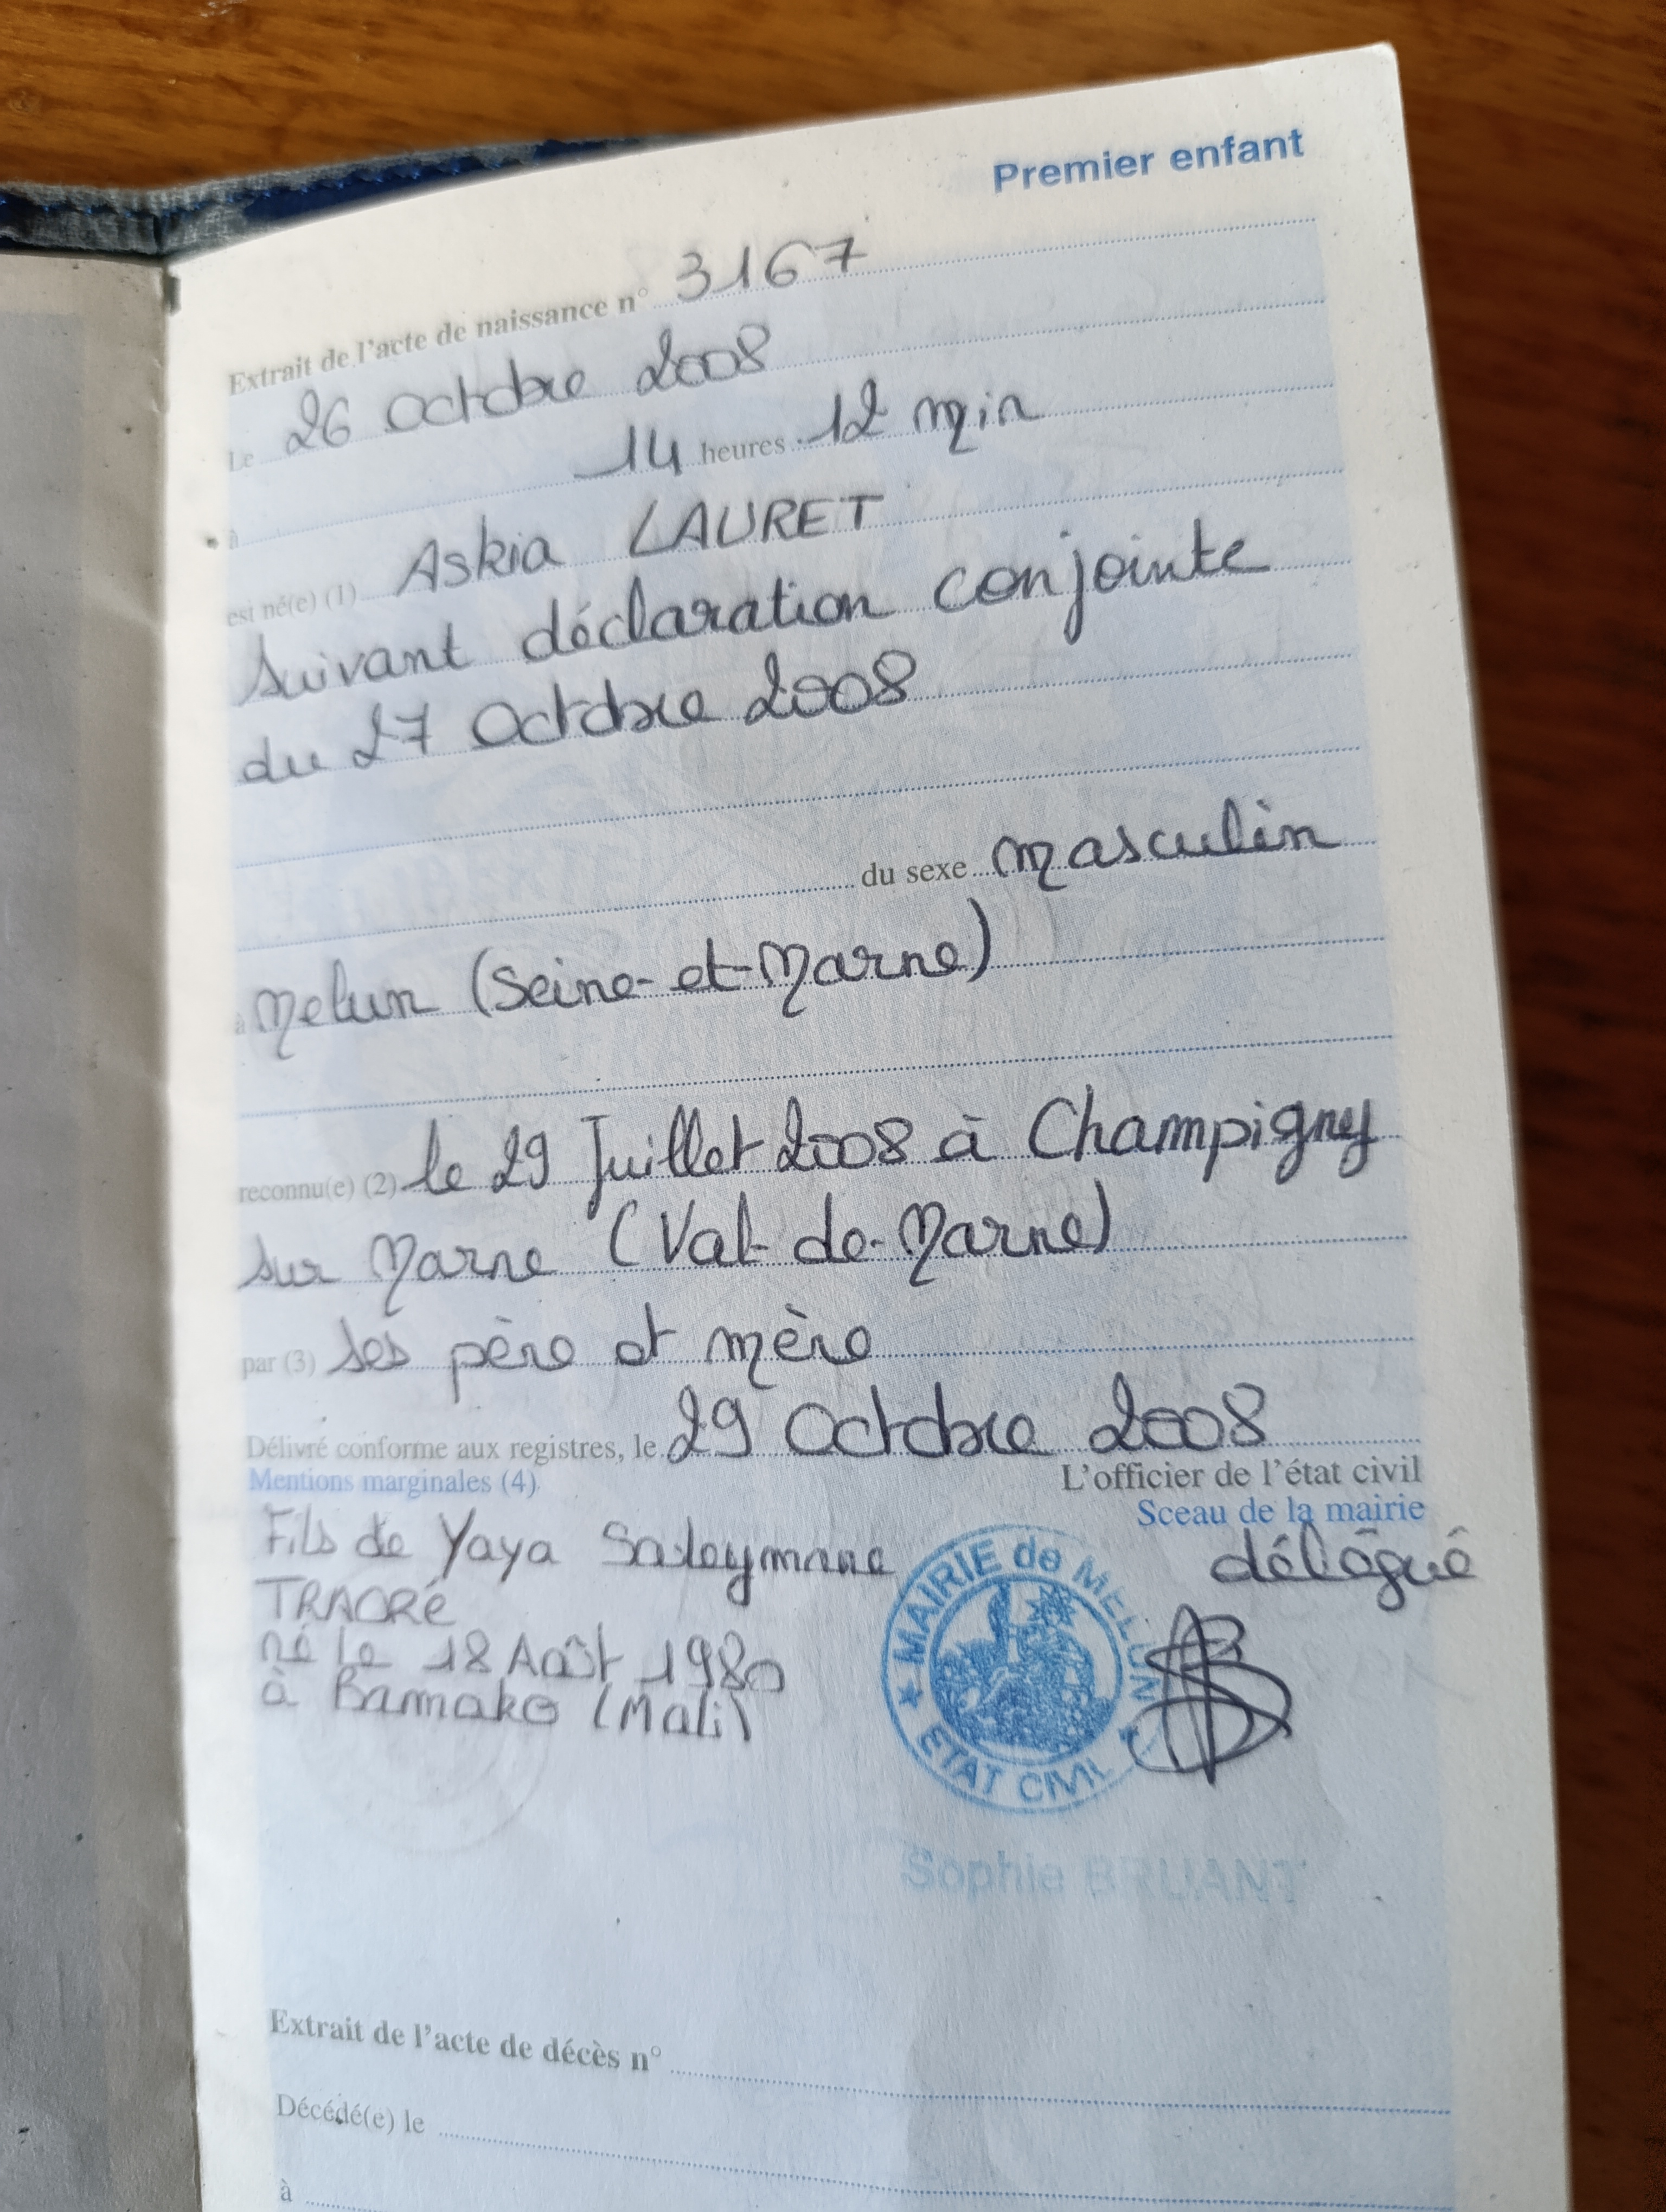 Premier enfant
Extrait de l'acte de naissance n° 3167
Le 26 Octobre 2008
à 14 heures 12 min
est né(e) (1) Askia LAURET
suivant déclaration conjointe
du 27 Octobre 2008
du sexe masculin
à Melun (Seine-et-Marne)
reconnu(e) (2) le 29 Juillet 2008 à Champigny
sur Marne (Val-de-Marne)
par (3) ses père et mère
Délivré conforme aux registres, le 29 Octobre 2008
Mentions marginales (4)
L'officier de l'état civil
Sceau de la mairie
délégué
Fils de Yaya Souleymane
TRAORÉ
né le 18 Août 1980
à Bamako (Mali)
MAIRIE de MELUN
ETAT CIVIL
Sophie BRUANT
Extrait de l'acte de décès n°
Décédé(e) le
à